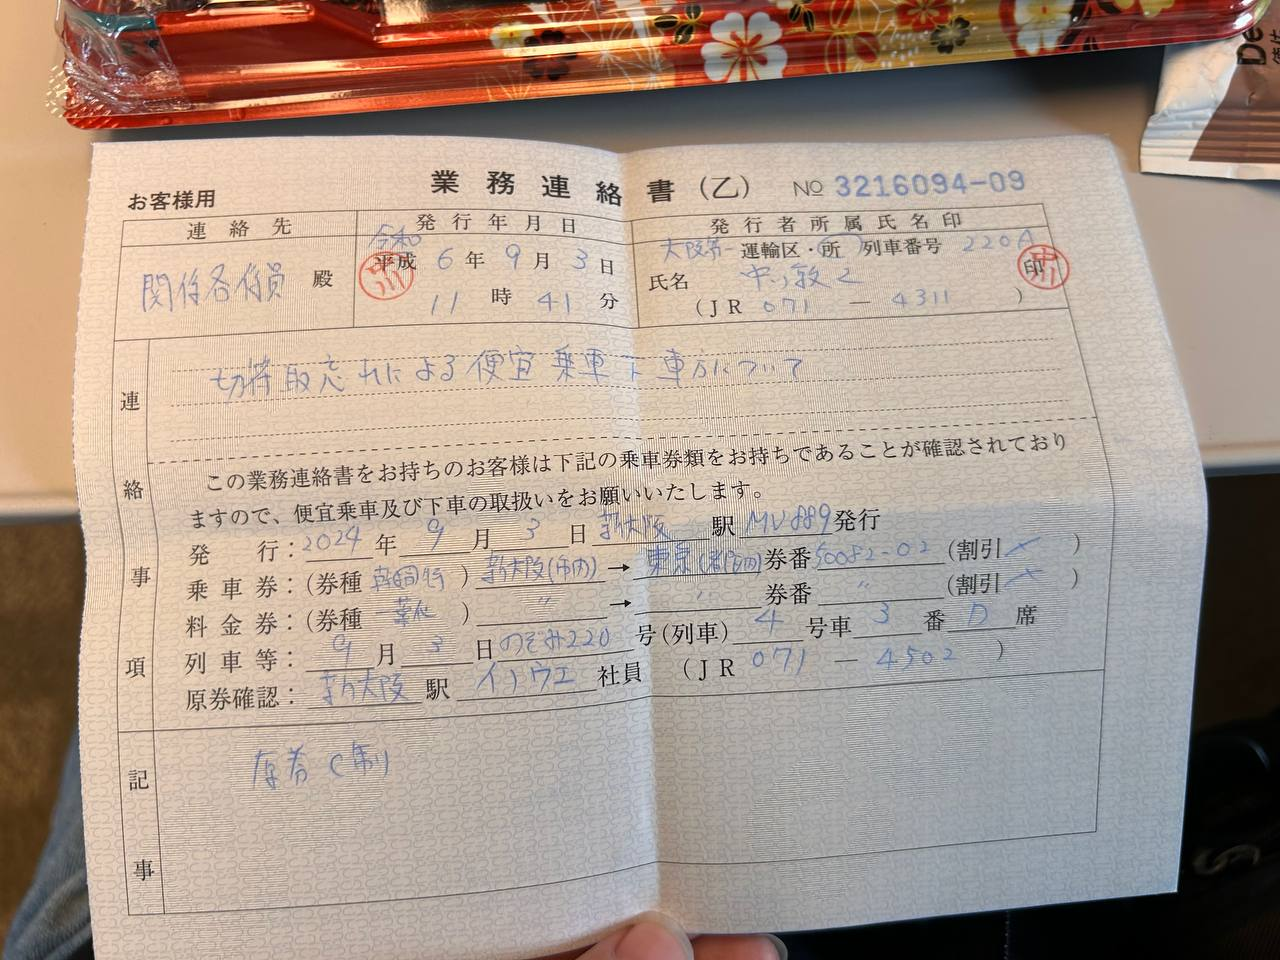 De
お客様用
業務連絡書(乙) No 3216094-09
連絡先 発行年月日 発行者所属氏名印
関係各係員 殿
令和
平成 6年9月3日
11時41分
大阪第一 運輸区・所 列車番号 220A
氏名 印
(JR 071 — 4311)
連絡事項
切符取忘れによる便宜乗車下車方について
この業務連絡書をお持ちのお客様は下記の乗車券類をお持ちであることが確認されており
ますので、便宜乗車及び下車の取扱いをお願いいたします。
発行:2024年9月3日 新大阪 駅 MV889 発行
乗車券:(券種 ) 新大阪(市内) → 東京(都区内) 券番 50082-02 (割引 )
料金券:(券種 一葉化) 〃 → 〃 券番 〃 (割引 )
列車等:9月3日 のぞみ220号(列車) 4号車 3番 D席
原券確認:新大阪 駅 イノウエ 社員 (JR 071 — 4502)
記事
C制